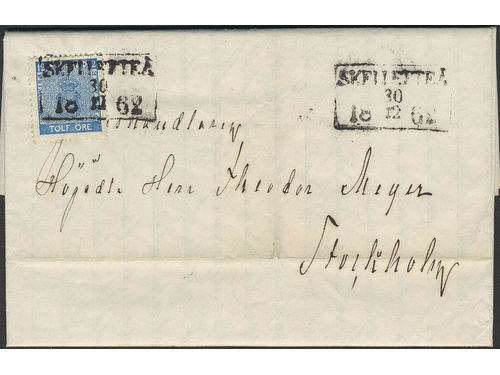 SKELLEFTEÅ
30
18 12 62
TOLF ÖRE
SKELLEFTEÅ
30
18 12 62
Högädle Herr Theodor Meyer
Stockholm